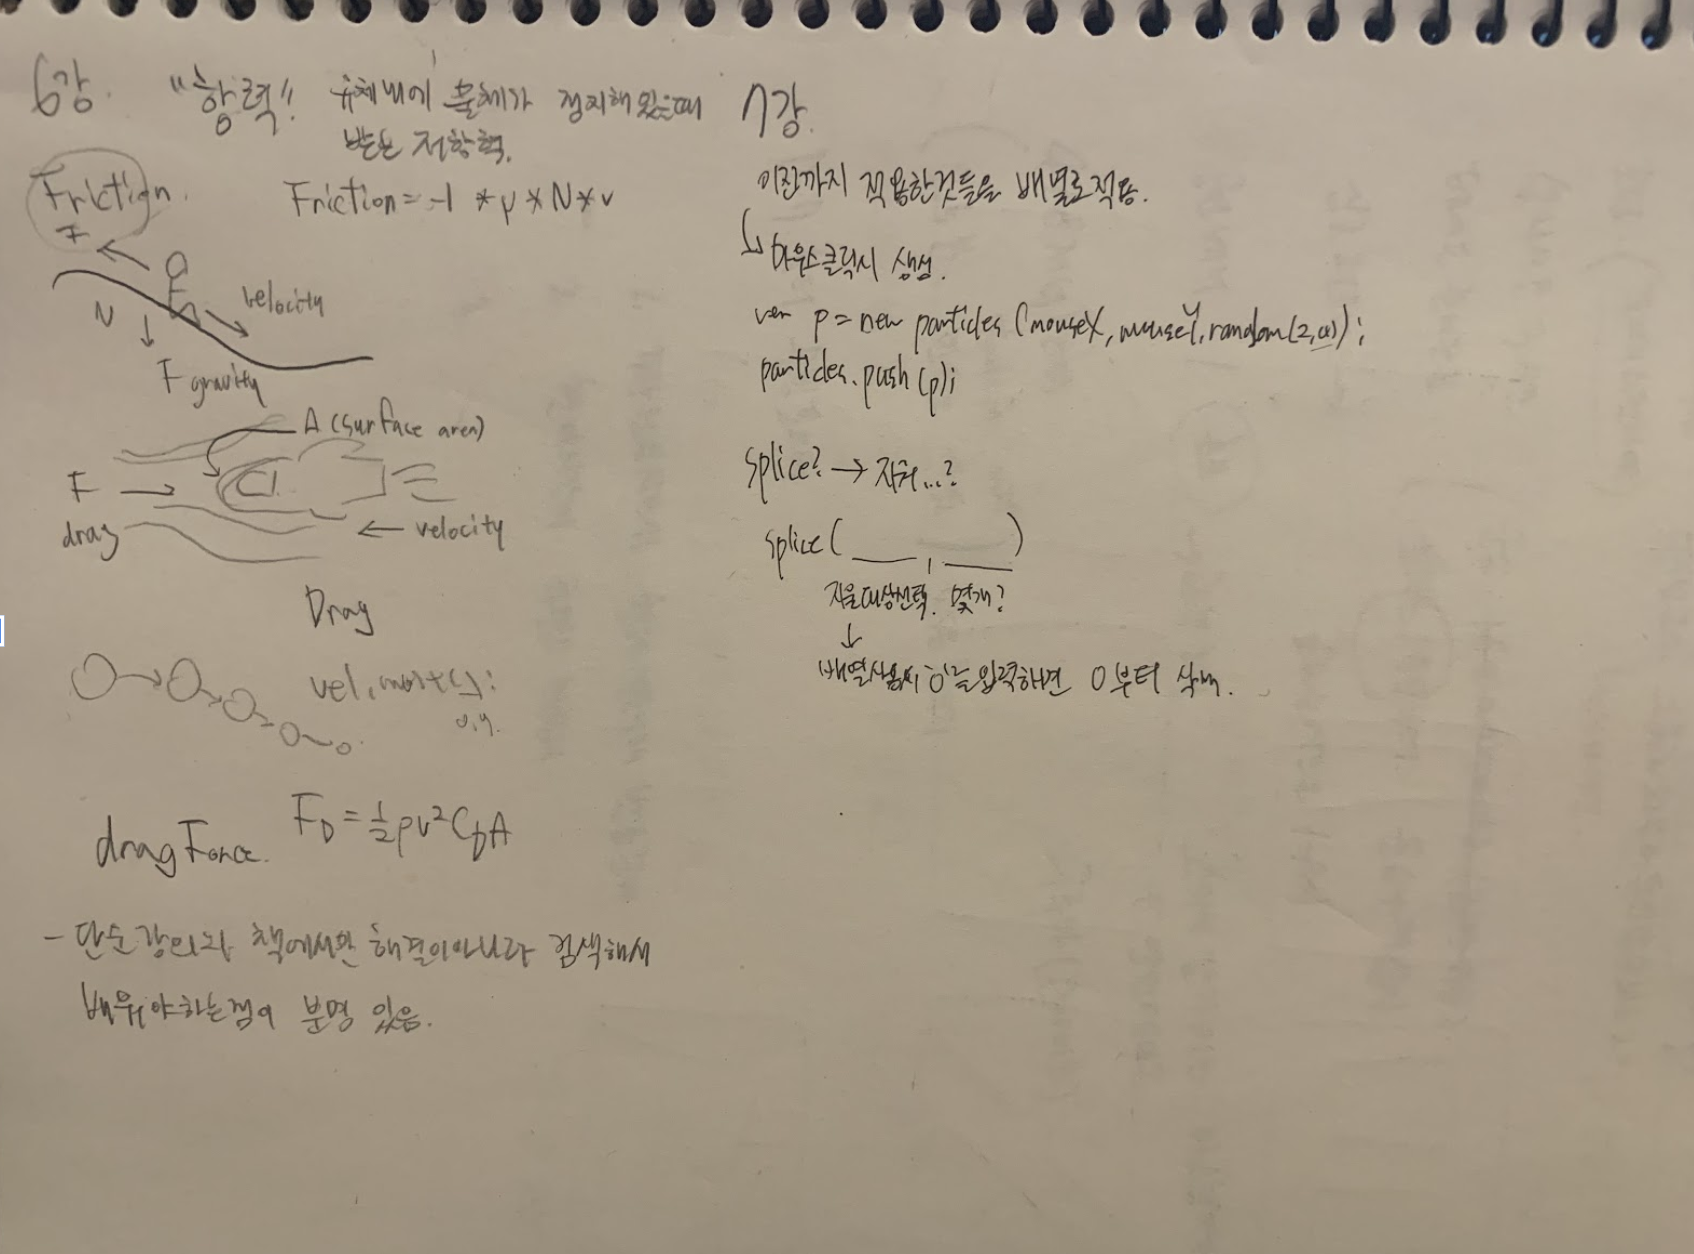 6강.
"항력" 유체내에 물체가 정지해있을때
받는 저항력.
Friction.
Friction = -1 * μ * N * v
F
N
velocity
F gravity
A (surface area)
F
drag
velocity
Drag
vel.mult( );
0.9.
drag Force.
F_D = 1/2 ρv²C_dA
- 단순 강의와 책에서만 해결이아니라 검색해서
배워야하는점이 분명 있음.
7강.
이전까지 적용한것들을 배열로적용.
↳ 마우스클릭시 생성.
var p = new particles (mouseX, mouseY, random(2, ));
particles.push(p);
splice? → 지워...?
splice( ___ , ___ )
지울대상선택. 몇개?
↓
배열사용시 0을입력하면 0부터 삭제.